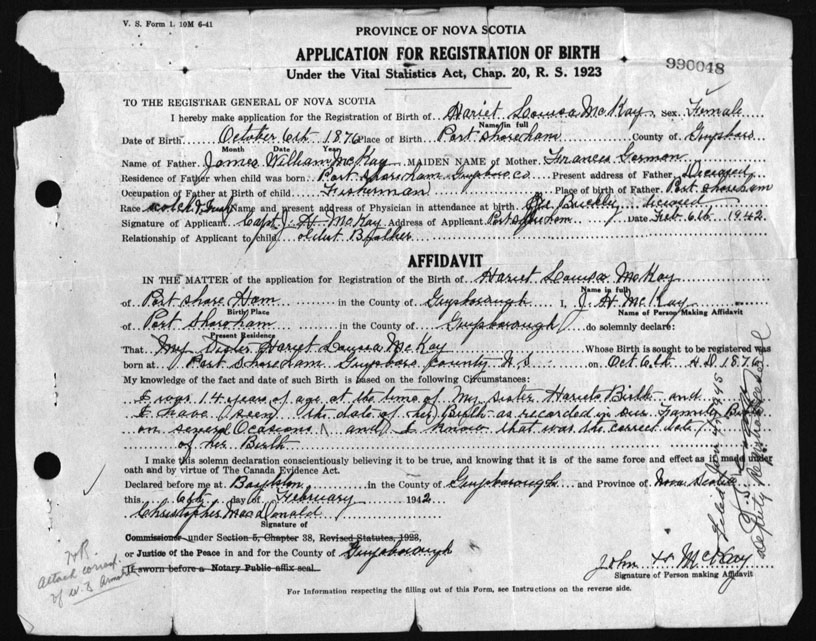 V. S. Form 1. 10M 6-41
PROVINCE OF NOVA SCOTIA
APPLICATION FOR REGISTRATION OF BIRTH
990048
Under the Vital Statistics Act, Chap. 20, R. S. 1923
TO THE REGISTRAR GENERAL OF NOVA SCOTIA
I hereby make application for the Registration of Birth of Hariet Louisa McKay, sex Female
Name in full
Date of Birth October 6th 1876 Place of Birth Port Shoreham County of Guysboro
Month Date Year
Name of Father James William McKay MAIDEN NAME of Mother Frances Gorman
Residence of Father when child was born Port Shoreham Guysboro Co Present address of Father Deceased
Occupation of Father at Birth of child Fisherman Place of birth of Father Port Shoreham
Race Scotch & Name and present address of Physician in attendance at birth
Signature of Applicant Capt J. H. McKay Address of Applicant Port Shoreham Date Feb 6th 1942
Relationship of Applicant to child
AFFIDAVIT
IN THE MATTER of the application for Registration of the Birth of Hariet Louisa McKay
Name in full
of Port Share Ham in the County of Guysborough I, J. H McKay
Birth Place Name of Person Making Affidavit
of Port Shoreham in the County of Guysborough do solemnly declare:
Present Residence
That My Sister Hariet Louisa McKay Whose Birth is sought to be registered was
born at Port Shoreham Guysboro County N.S on Oct 6th AD 1876
My knowledge of the fact and date of such Birth is based on the following Circumstances:
I was 14 years of age at the time of My Sister Hariets Birth and
I have seen the date of her Birth as recorded in our Family Bible
on several Ocasions and I know that was the correct date
of her Birth
I make this solemn declaration conscientiously believing it to be true, and knowing that it is of the same force and effect as if made under
oath and by virtue of The Canada Evidence Act.
Declared before me at Boylston in the County of Guysborough and Province of Nova Scotia
this 6th day of February 1942
Christopher MacDonald
Signature of
Commissioner under Section 5, Chapter 38, Revised Statutes, 1923,
or Justice of the Peace in and for the County of Guysborough
If sworn before a Notary Public affix seal.
John H McKay
Signature of Person making Affidavit
For Information respecting the filling out of this Form, see Instructions on the reverse side.
Deputy Registrar General